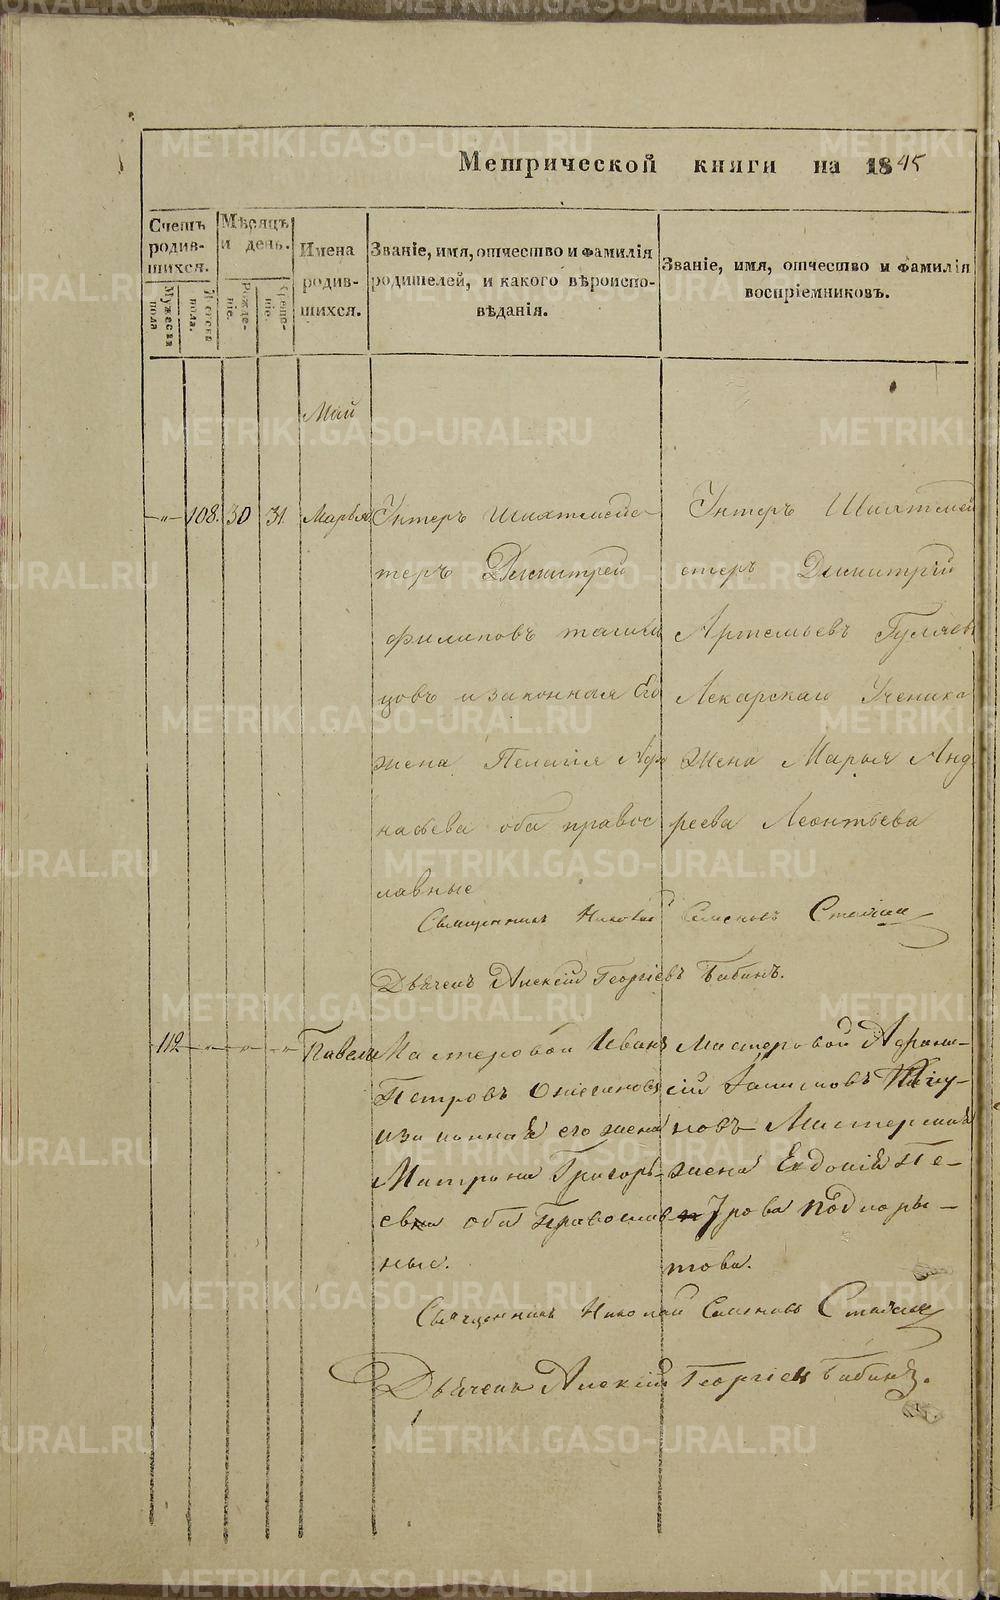 Метрической книги на 1845
Счетъ родив-шихся.
Мужеска пола
Женска пола.
Мѣсяцъ и день.
Рожде-ніе.
Креще-ніе.
Имена родив-шихся.
Званіе, имя, отчество и фамилія
родителей, и какого вѣроиспо-
вѣданія.
Званіе, имя, отчество и фамилія
воспріемниковъ.
Май
-"- 108. 30 31 Марья
Унтеръ Шихтмейс-
теръ Димитрей
Филиповъ
цовъ и законная Его
жена Пелагия
насьева оба правос
лавные
Унтеръ Шихтмей
стеръ Димитрій
Артемьевъ Гуляевъ
Лекарскаго Ученика
Жена Марья Анд
реева Леонтьева
Священникъ Николай Семеновъ
Дьячекъ Алексій Георгіевъ Бабинъ.
112 -"- -"- -"- Павелъ
Мастеровой Иванъ
Петровъ
и законная его жена
Матрона Григорь-
евна оба Православ-
ные.
Мастеровой
новъ Мастерская
жена Евдокія Пе-
трова
това.
Священникъ Николай Семеновъ
Дьячекъ Алексій Георгіевъ Бабинъ.
METRIKI.GASO-URAL.RU